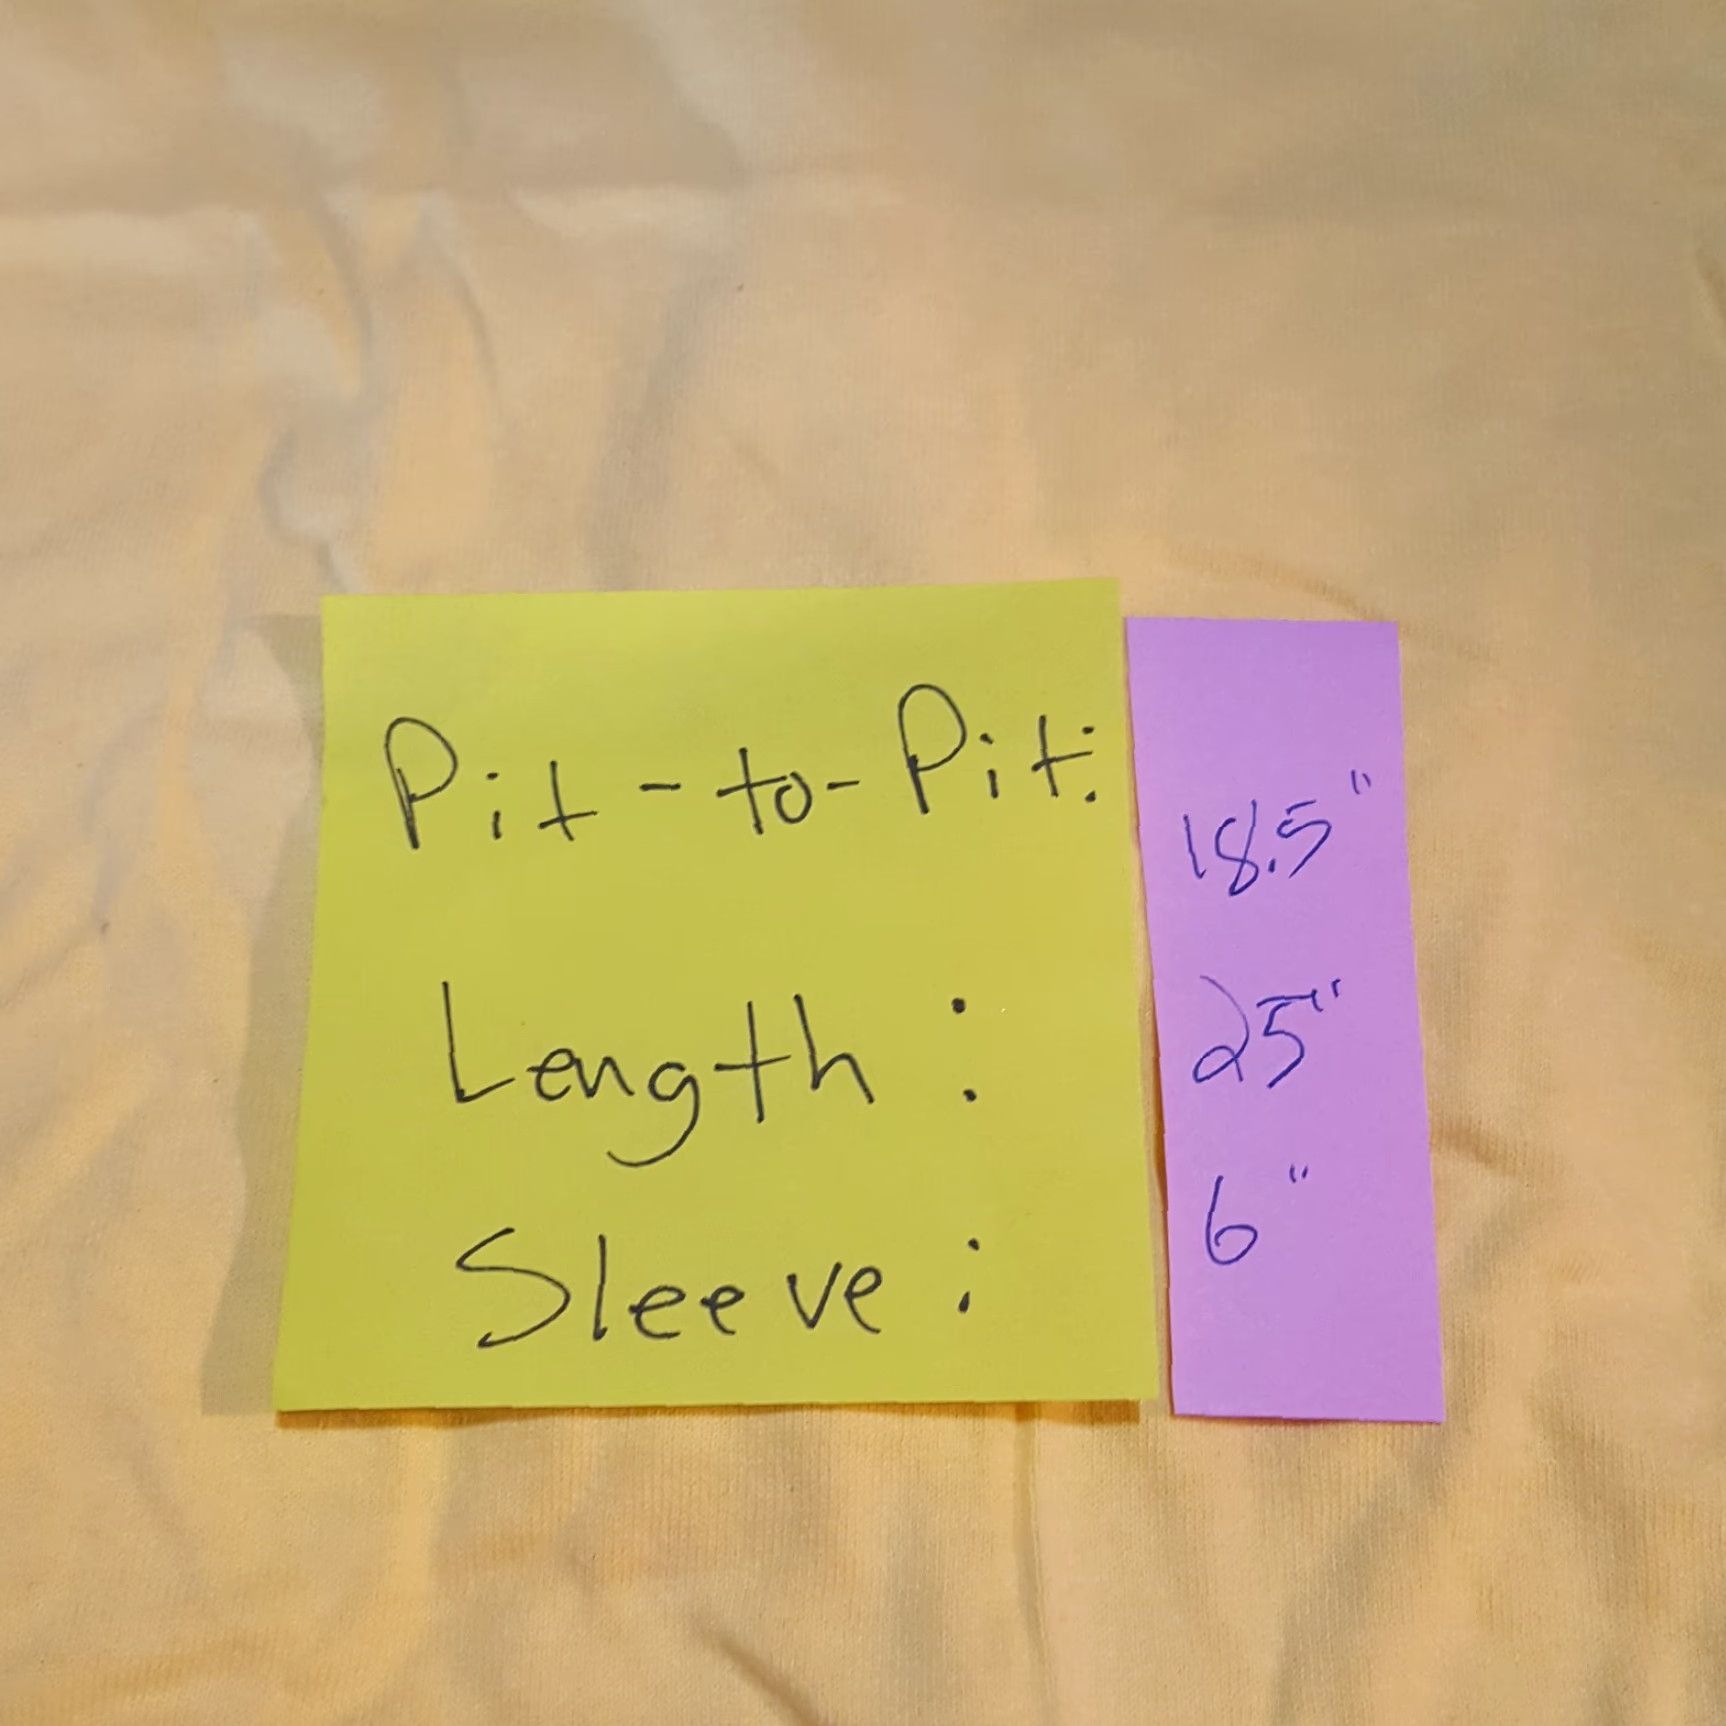 Pit-to-Pit: 18.5"
Length: 25"
Sleeve: 6"